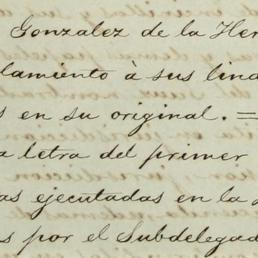 Gonzalez de la Her
lamiento à sus lind
s en su original. =
a letra del primer
as ejecutadas en la
s por el Subdelegad